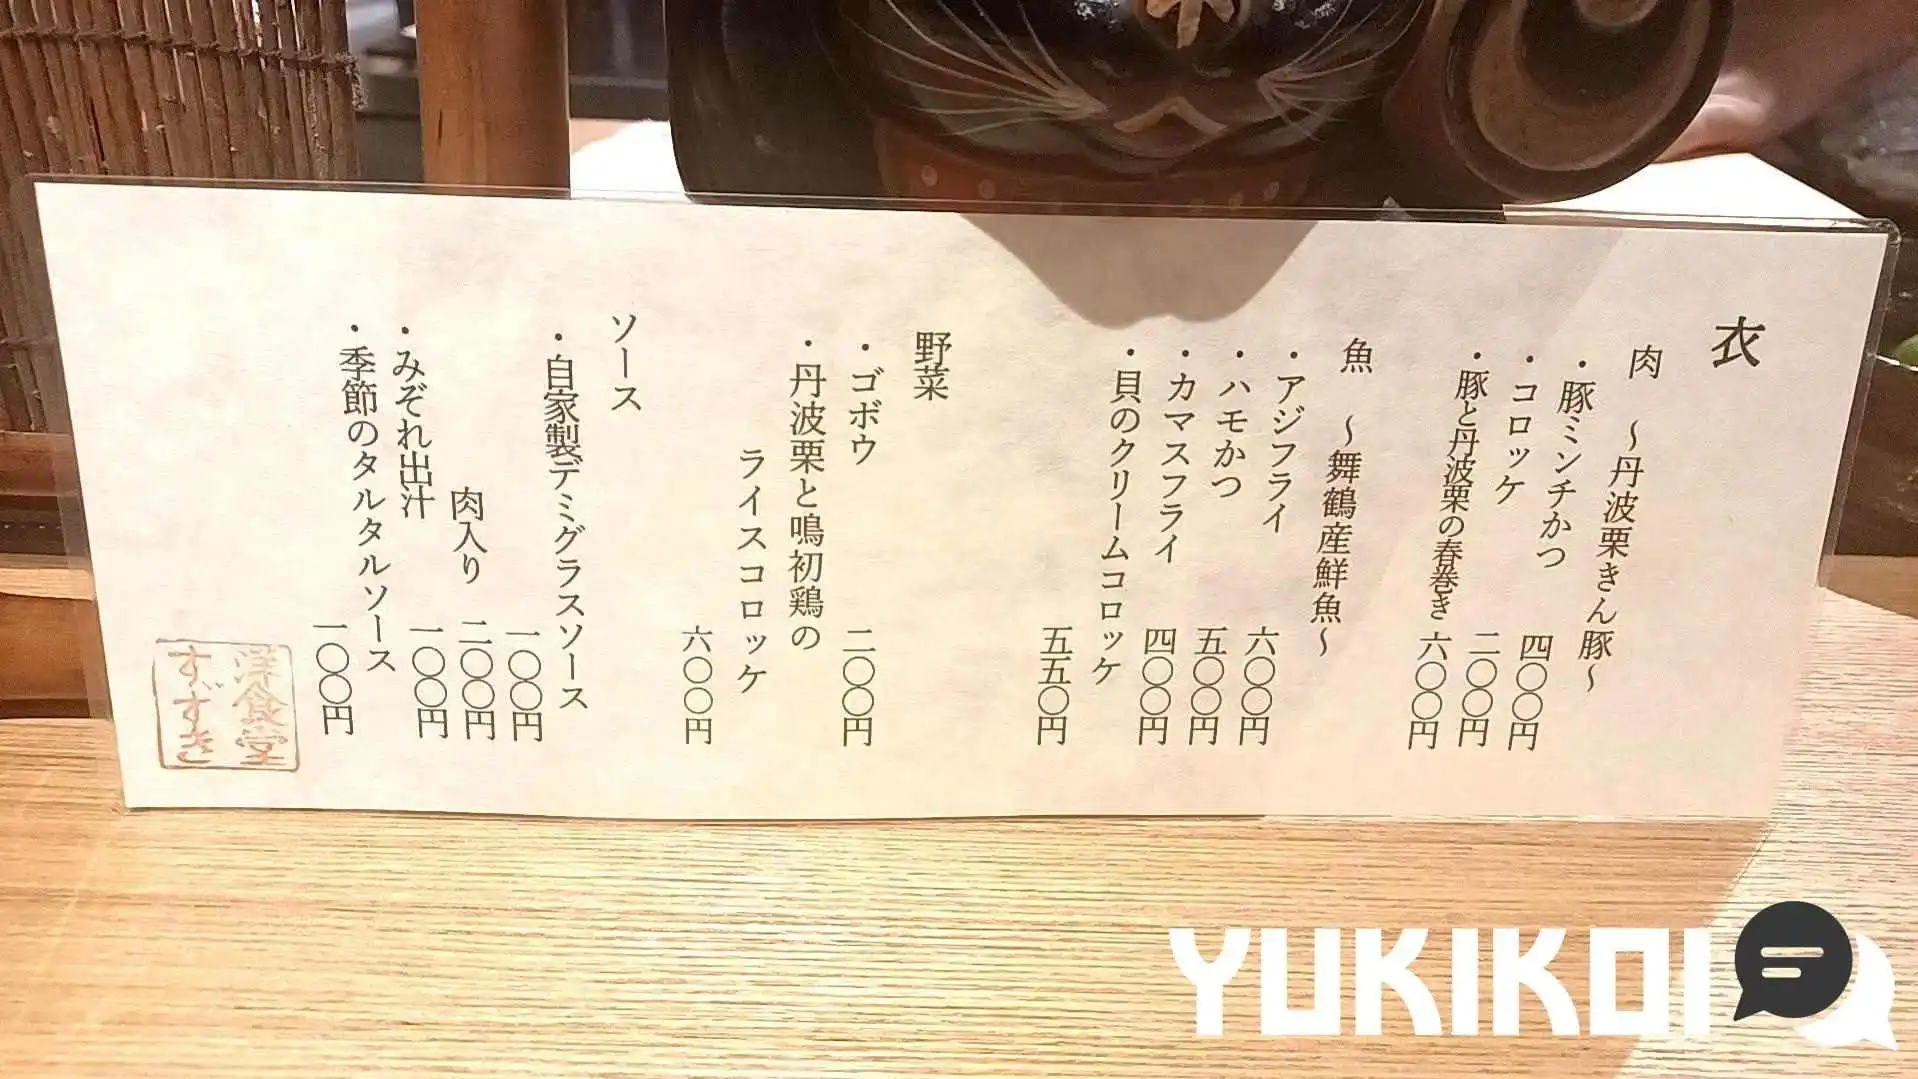 衣
肉 〜丹波栗きん豚〜
・豚ミンチかつ 四〇〇円
・コロッケ 二〇〇円
・豚と丹波栗の春巻き 六〇〇円
魚 〜舞鶴産鮮魚〜
・アジフライ 六〇〇円
・ハモかつ 五〇〇円
・カマスフライ 四〇〇円
・貝のクリームコロッケ 五五〇円
野菜
・ゴボウ 二〇〇円
・丹波栗と鳴初鶏の
ライスコロッケ 六〇〇円
ソース
・自家製デミグラスソース 一〇〇円
肉入り 二〇〇円
・みぞれ出汁 一〇〇円
・季節のタルタルソース 一〇〇円
洋食堂
すゞき
YUKIKOI